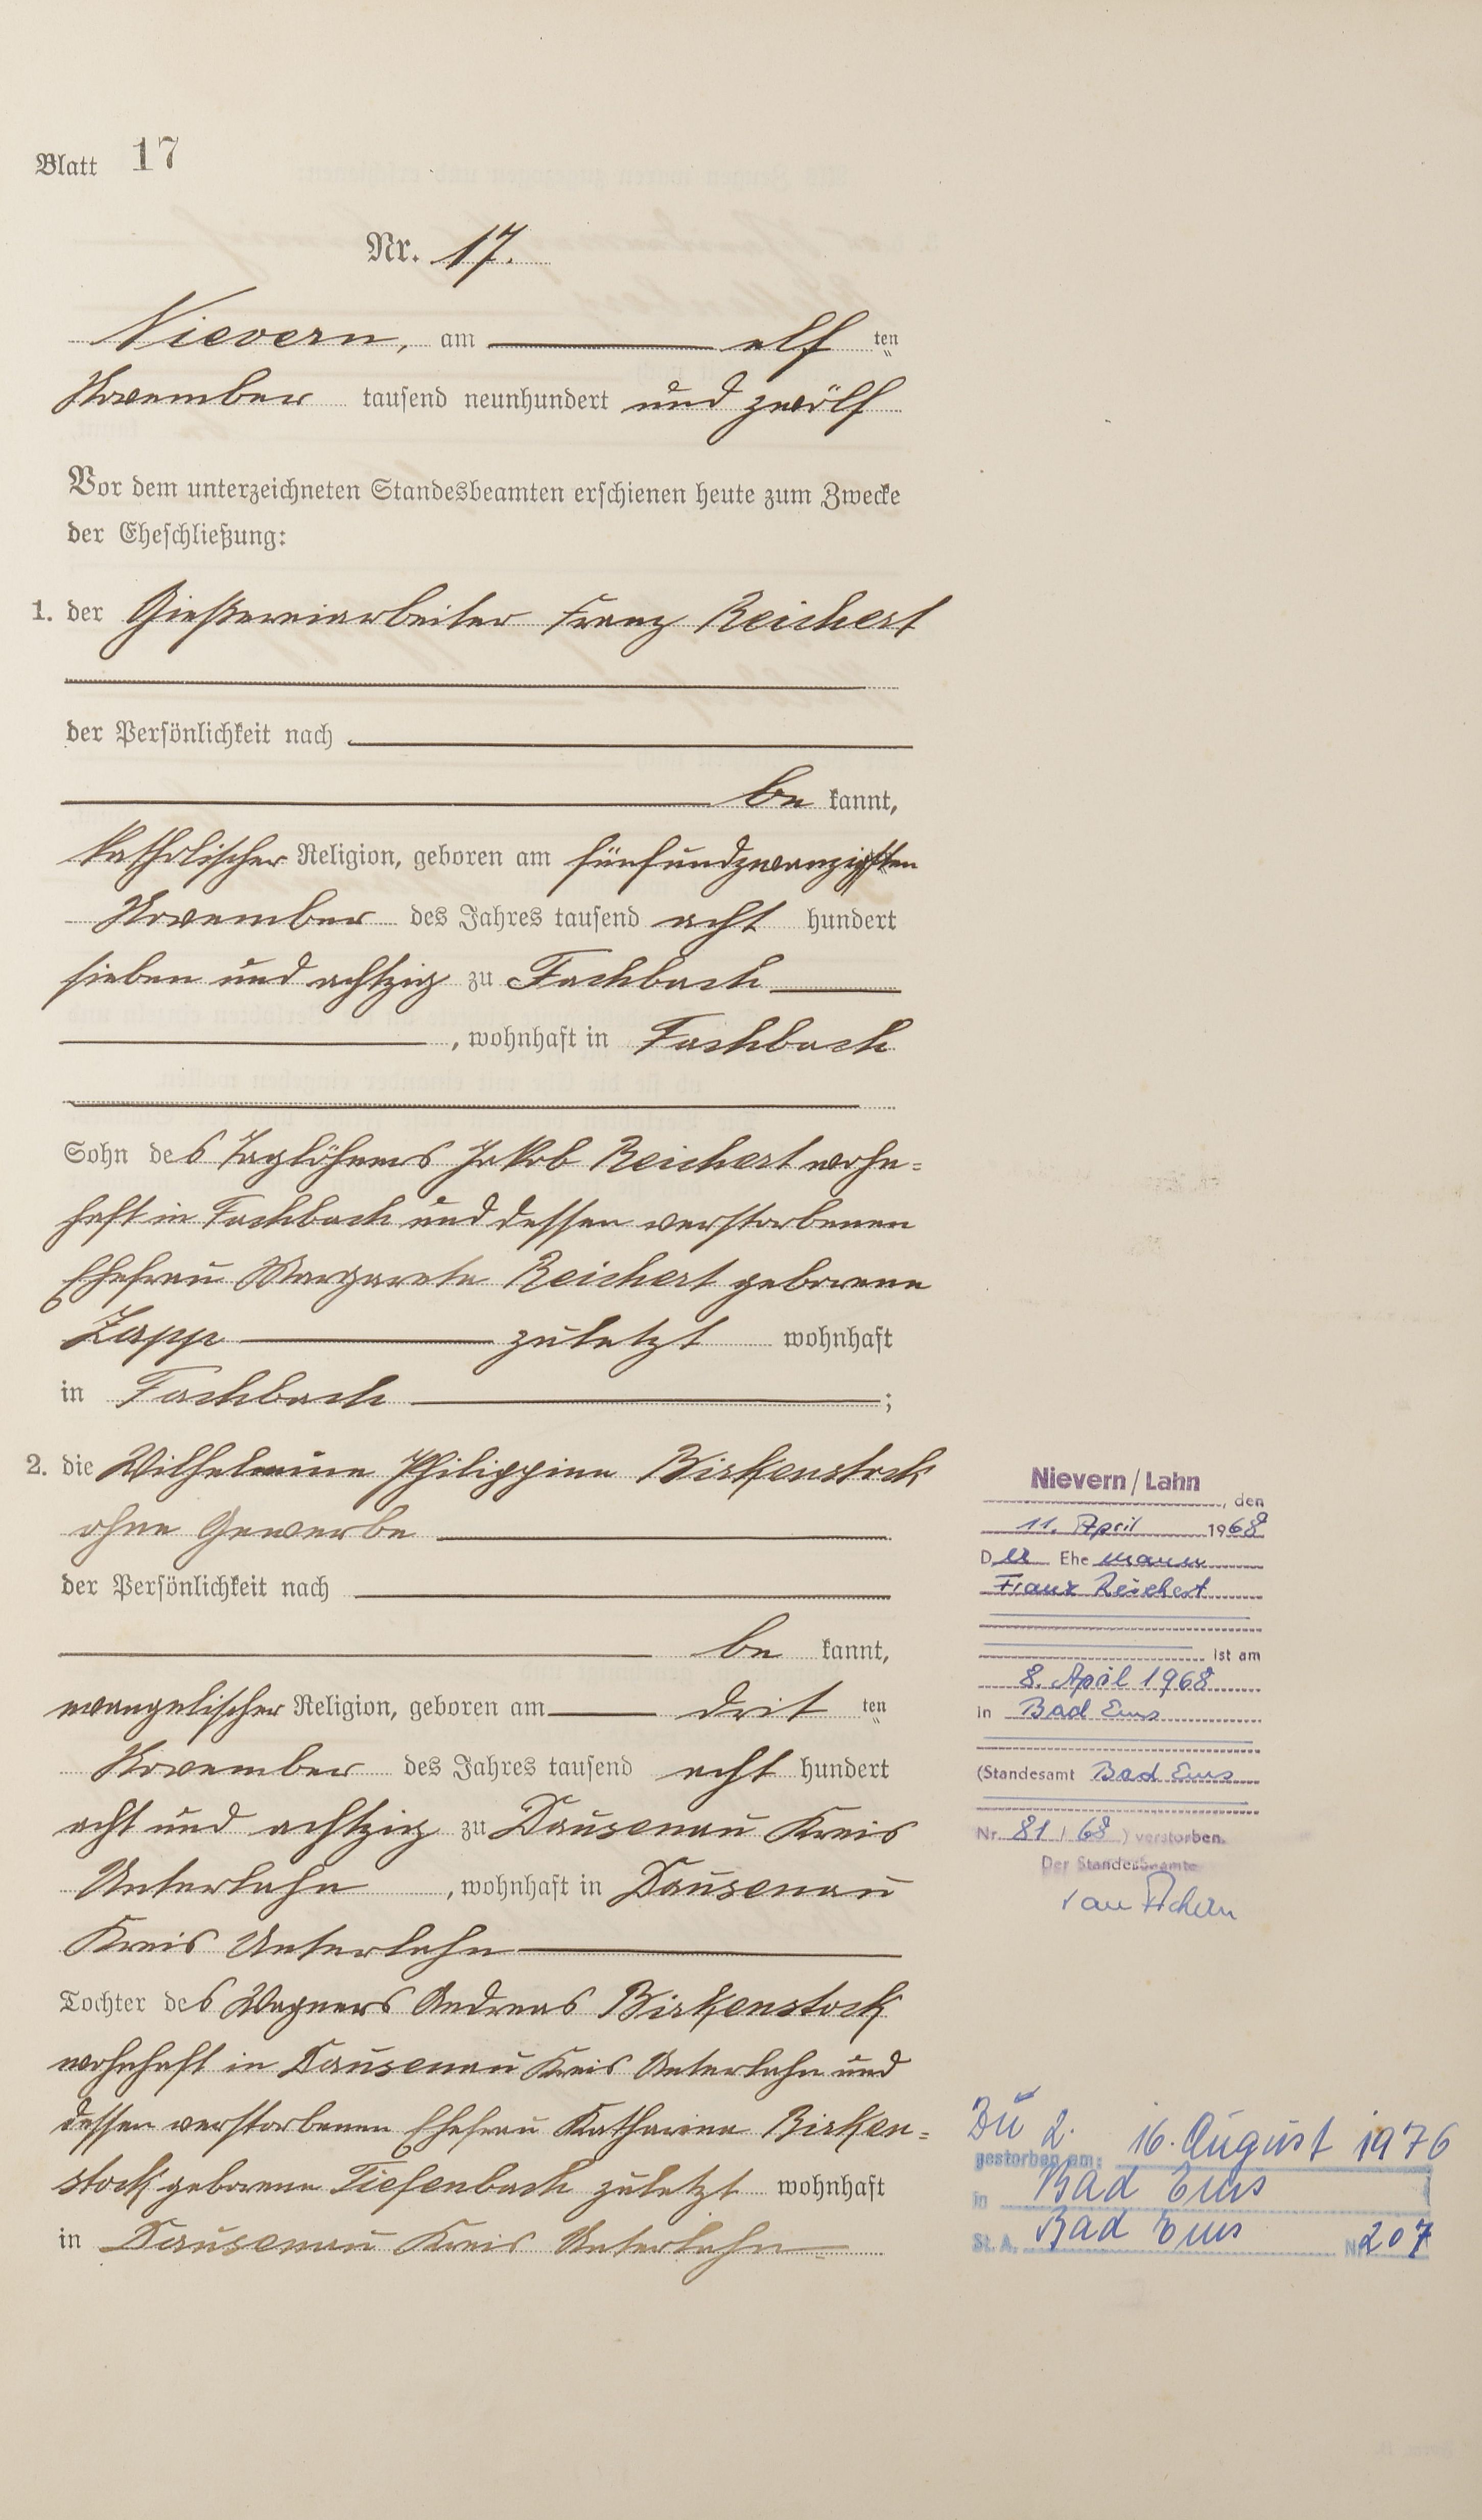 Blatt 17
Nr. 17.
Nievern, am elf ten
November tausend neunhundert und zwölf
Vor dem unterzeichneten Standesbeamten erschienen heute zum Zwecke
der Eheschließung:
1. der Gießereiarbeiter Franz Reichert
der Persönlichkeit nach
be kannt,
katholischer Religion, geboren am fünfundzwanzigsten
November des Jahres tausend acht hundert
sieben und achtzig zu Fachbach
, wohnhaft in Fachbach
Sohn des Taglöhners Jakob Reichert wohn=
haft in Fachbach und dessen verstorbenen
Ehefrau Margareta Reichert geborene
Zapp zuletzt wohnhaft
in Fachbach ;
2. die Wilhelmine Philippine Birkenstock
ohne Gewerbe
der Persönlichkeit nach
be kannt,
evangelischer Religion, geboren am drit ten
November des Jahres tausend acht hundert
acht und achtzig zu Dausenau Kreis
Unterlahn , wohnhaft in Dausenau
Kreis Unterlahn
Tochter des Wagners Andreas Birkenstock
wohnhaft in Dausenau Kreis Unterlahn und
dessen verstorbenen Ehefrau Katharina Birken=
stock geborene Tiefenbach zuletzt wohnhaft
in Dausenau Kreis Unterlahn
Nievern/Lahn
, den
11. April 1968
Der Ehe mann
Franz Reichert
ist am
8. April 1968
in Bad Ems
(Standesamt Bad Ems
Nr. 81 / 68 ) verstorben.
Der Standesbeamte
Zu 2.
gestorben am: 16. August 1976
in Bad Ems
St. A. Bad Ems Nr. 207